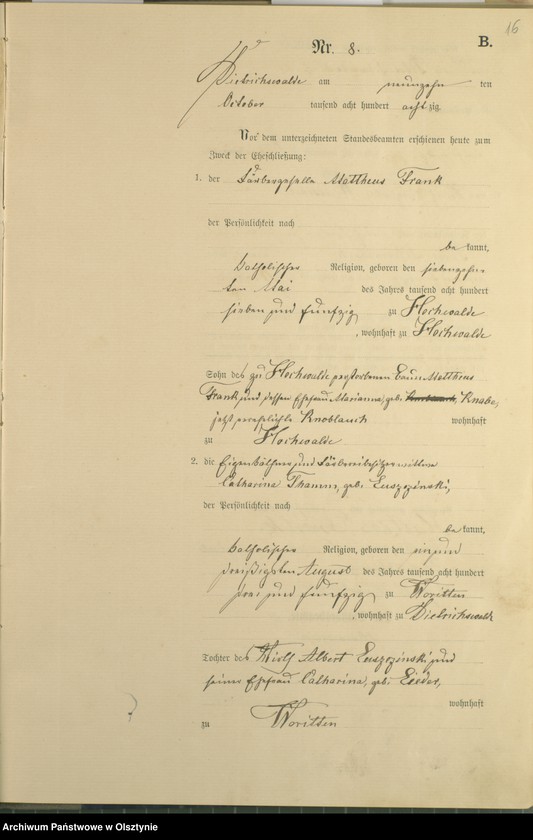 16
Nr. 8.
B.
Dietrichswalde am neunzehn ten
October tausend acht hundert achtzig.
Vor dem unterzeichneten Standesbeamten erschienen heute zum
Zweck der Eheschließung:
1. der Färbergeselle Mattheus Frank
der Persönlichkeit nach
be kannt,
katholischer Religion, geboren den siebenzehn
ten Mai des Jahres tausend acht hundert
sieben und fünfzig zu Hochwalde
, wohnhaft zu Hochwalde
Sohn des zu Hochwalde verstorbenen Mattheus
Frank und dessen Ehefrau Marianna, geb. Knabe,
jetzt verehelichte Knoblauch wohnhaft
zu Hochwalde
2. die Eigenkäthner und Färbereibesitzerwittwe
Catharina Thamm, geb. Euszczinski,
der Persönlichkeit nach
be kannt,
katholischer Religion, geboren den ein und
dreißigsten August des Jahres tausend acht hundert
drei und fünfzig zu Woritten
, wohnhaft zu Dietrichswalde
Tochter des Wirth Albert Euszczinski und
seiner Ehefrau Catharina, geb. Lieder,
wohnhaft
zu Woritten
Archiwum Państwowe w Olsztynie